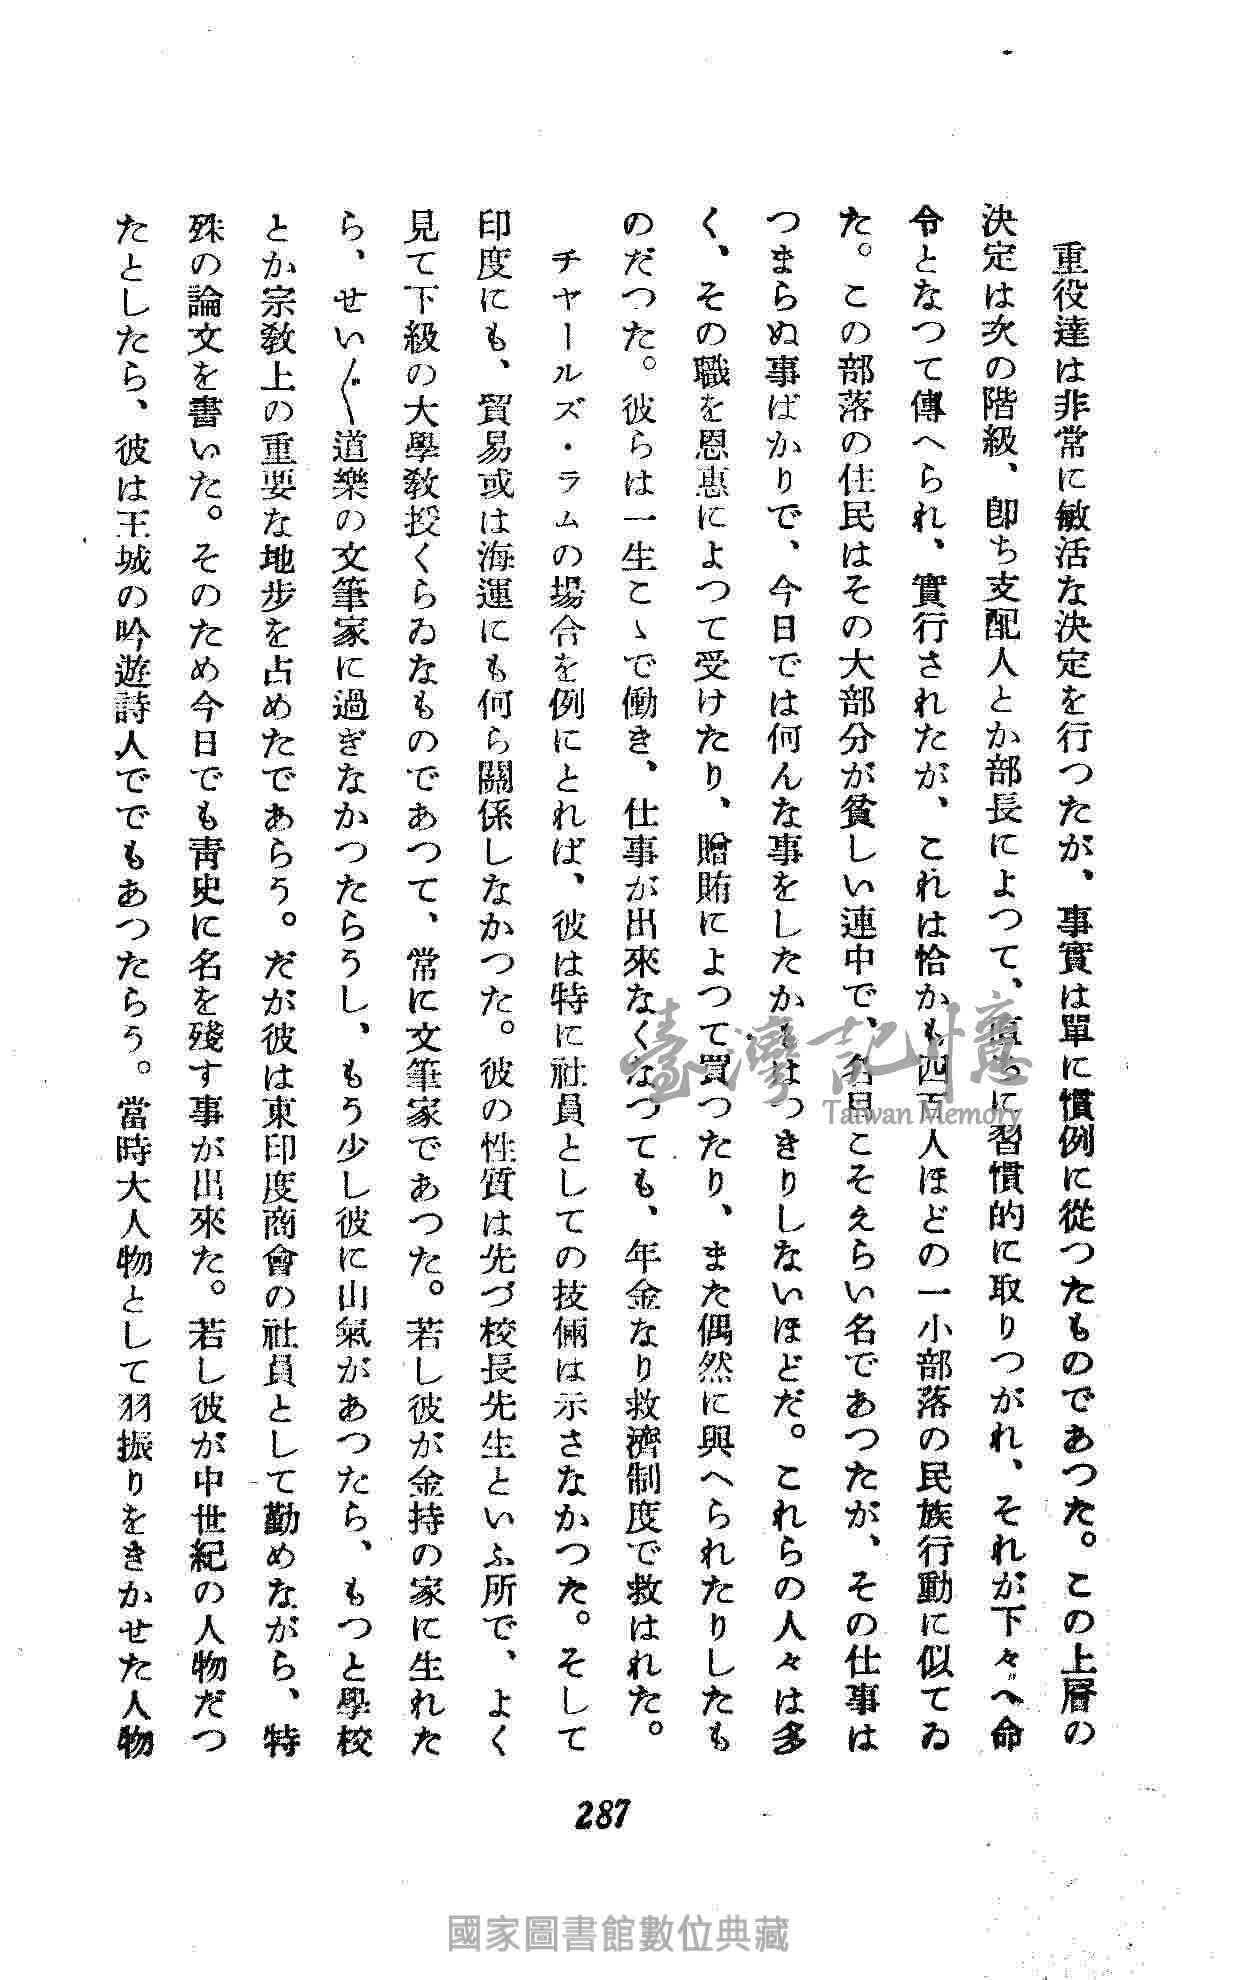 重役達は非常に敏活な決定を行つたが、事實は單に慣例に從つたものであつた。この上層の
決定は次の階級、卽ち支配人とか部長によつて、直ちに習慣的に取りつがれ、それが下々へ命
令となつて傳へられ、實行されたが、これは恰かも四百人ほどの一小部落の民族行動に似てゐ
た。この部落の住民はその大部分が貧しい連中で、名目こそえらい名であつたが、その仕事は
つまらぬ事ばかりで、今日では何んな事をしたかもはつきりしないほどだ。これらの人々は多
く、その職を恩惠によつて受けたり、贈賄によつて買つたり、また偶然に與へられたりしたも
のだつた。彼らは一生こゝで働き、仕事が出來なくなつても、年金なり救濟制度で救はれた。
チヤールズ・ラムの場合を例にとれば、彼は特に社員としての技倆は示さなかつた。そして
印度にも、貿易或は海運にも何ら關係しなかつた。彼の性質は先づ校長先生といふ所で、よく
見て下級の大學敎授くらゐなものであつて、常に文筆家であつた。若し彼が金持の家に生れた
ら、せい〲道樂の文筆家に過ぎなかつたらうし、もう少し彼に山氣があつたら、もつと學校
とか宗敎上の重要な地步を占めたであらう。だが彼は東印度商會の社員として勤めながら、特
殊の論文を書いた。そのため今日でも靑史に名を殘す事が出來た。若し彼が中世紀の人物だつ
たとしたら、彼は王城の吟遊詩人ででもあつたらう。當時大人物として羽振りをきかせた人物
臺灣記憶
Taiwan Memory
287
國家圖書館數位典藏